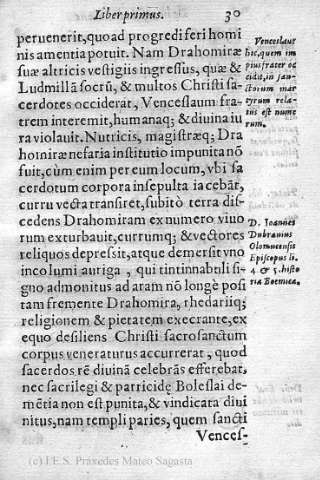 Liber primus. 30
peruenerit, quoad progredi feri homi
nis amentia potuit. Nam Drahomiræ
suæ altricis vestigiis ingressus, quæ &
Ludmillã socrũ, & multos Christi sa-
cerdotes occiderat, Venceslaum fra-
trem interemit, humanaq; & diuina iu
ra violauit. Nutricis, magistræq; Dra
homiræ nefaria institutio impunita nõ
fuit, cùm enim per eum locum, vbi sa
cerdotum corpora insepulta iacebãt,
curru vecta transiret, subitò terra dis-
cedens Drahomiram ex numero viuo
rum exturbauit, currumq; & vectores
reliquos depressit, atque demersit vno
incolumi auriga, qui tintinnabuli si-
gno admonitus ad aram nõ longè posi
tam fremente Drahomira, rhedariiq;
religionem & pietatem execrante, ex
equo desiliens Christi sacrosanctum
corpus veneraturus accurrerat, quod
sacerdos rẽ diuinã celebrãs efferebat,
nec sacrilegi & parricidę Boleslai de-
mẽtia non est punita, & vindicata diui
nitus, nam templi paries, quem sancti
Vences-
Venceslaus
hic, quem im
pius frater oc
cidit, in san-
ctorum mar
tyrum rela-
tus est nume
rum.
D. Ioannes
Dubrauius
Olomucensis
Episcopus li.
4 & 5. histo
ria Boemica.
(c) I.E.S. Práxedes Mateo Sagasta